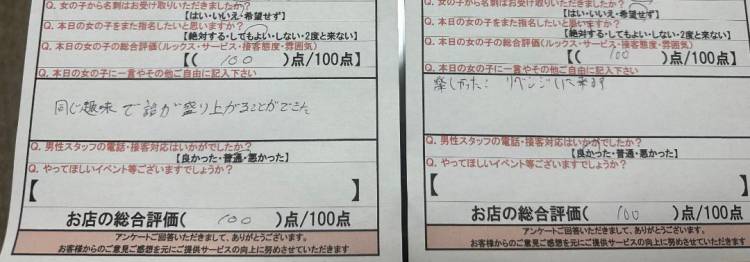 Q. 女の子から名刺はお受け取りいただきましたか?
【はい・いいえ・希望せず】
Q. 本日の女の子をまた指名したいと思いますか?
【絶対する・してもよい・しない・2度と来ない】
Q. 本日の女の子の総合評価(ルックス・サービス・接客態度・雰囲気)
【( 100 )点/100点
Q. 本日の女の子に一言やその他ご自由に記入下さい
同じ趣味で話が盛り上がることができた
Q. 男性スタッフの電話・接客対応はいかがでしたか?
【良かった・普通・悪かった】
Q. やってほしいイベント等ございますでしょうか?
【 】
お店の総合評価( 100 )点/100点
アンケートご回答いただきまして、ありがとうございます。
お客様からのご意見ご感想を元にご提供サービスの向上に努めさせていただきます
Q. 女の子から名刺はお受け取りいただきましたか?
【はい・いいえ・希望せず】
Q. 本日の女の子をまた指名したいと思いますか?
【絶対する・してもよい・しない・2度と来ない】
Q. 本日の女の子の総合評価(ルックス・サービス・接客態度・雰囲気)
【( 100 )点/100点
Q. 本日の女の子に一言やその他ご自由に記入下さい
楽しかった! リベンジしに来ます
Q. 男性スタッフの電話・接客対応はいかがでしたか?
【良かった・普通・悪かった】
Q. やってほしいイベント等ございますでしょうか?
【 】
お店の総合評価( 100 )点/100点
アンケートご回答いただきまして、ありがとうございます。
お客様からのご意見ご感想を元にご提供サービスの向上に努めさせていただきます